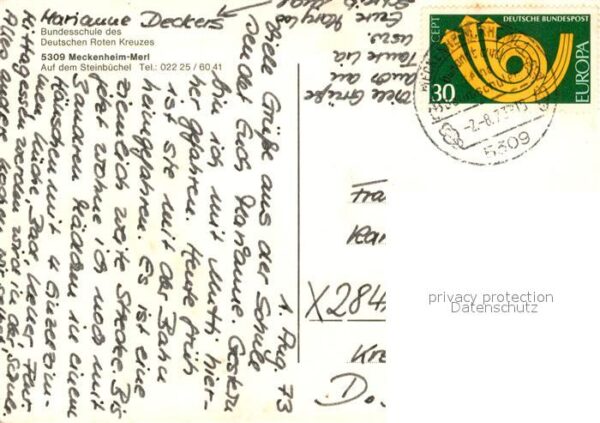 Marianne Deckers
Bundesschule des
Deutschen Roten Kreuzes
5309 Meckenheim-Merl
Auf dem Steinbüchel Tel.: 022 25 / 60 41
1. Aug. 73
Viele Grüße aus der Schule
sendet Euch Marianne. Gestern
bin ich mit Mutti hier-
her gefahren. Heute früh
ist sie mit der Bahn
heimgefahren. Es ist eine
ziemlich weite Strecke. Bis
jetzt wohne ich noch mit
3 anderen Mädchen in einem
Häuschen mit 4 Einzelzim-
mern, Küche, Bad, Keller, Flur.
Mittagessen werden wir in der Schule.
Alles andere kochen wir selber.
Viele Grüße
auch an
Tante
usw.
Eure Mary
CEPT
DEUTSCHE BUNDESPOST
EUROPA
30
-2.-8.73
5309
X284
Kre
D.
privacy protection
Datenschutz